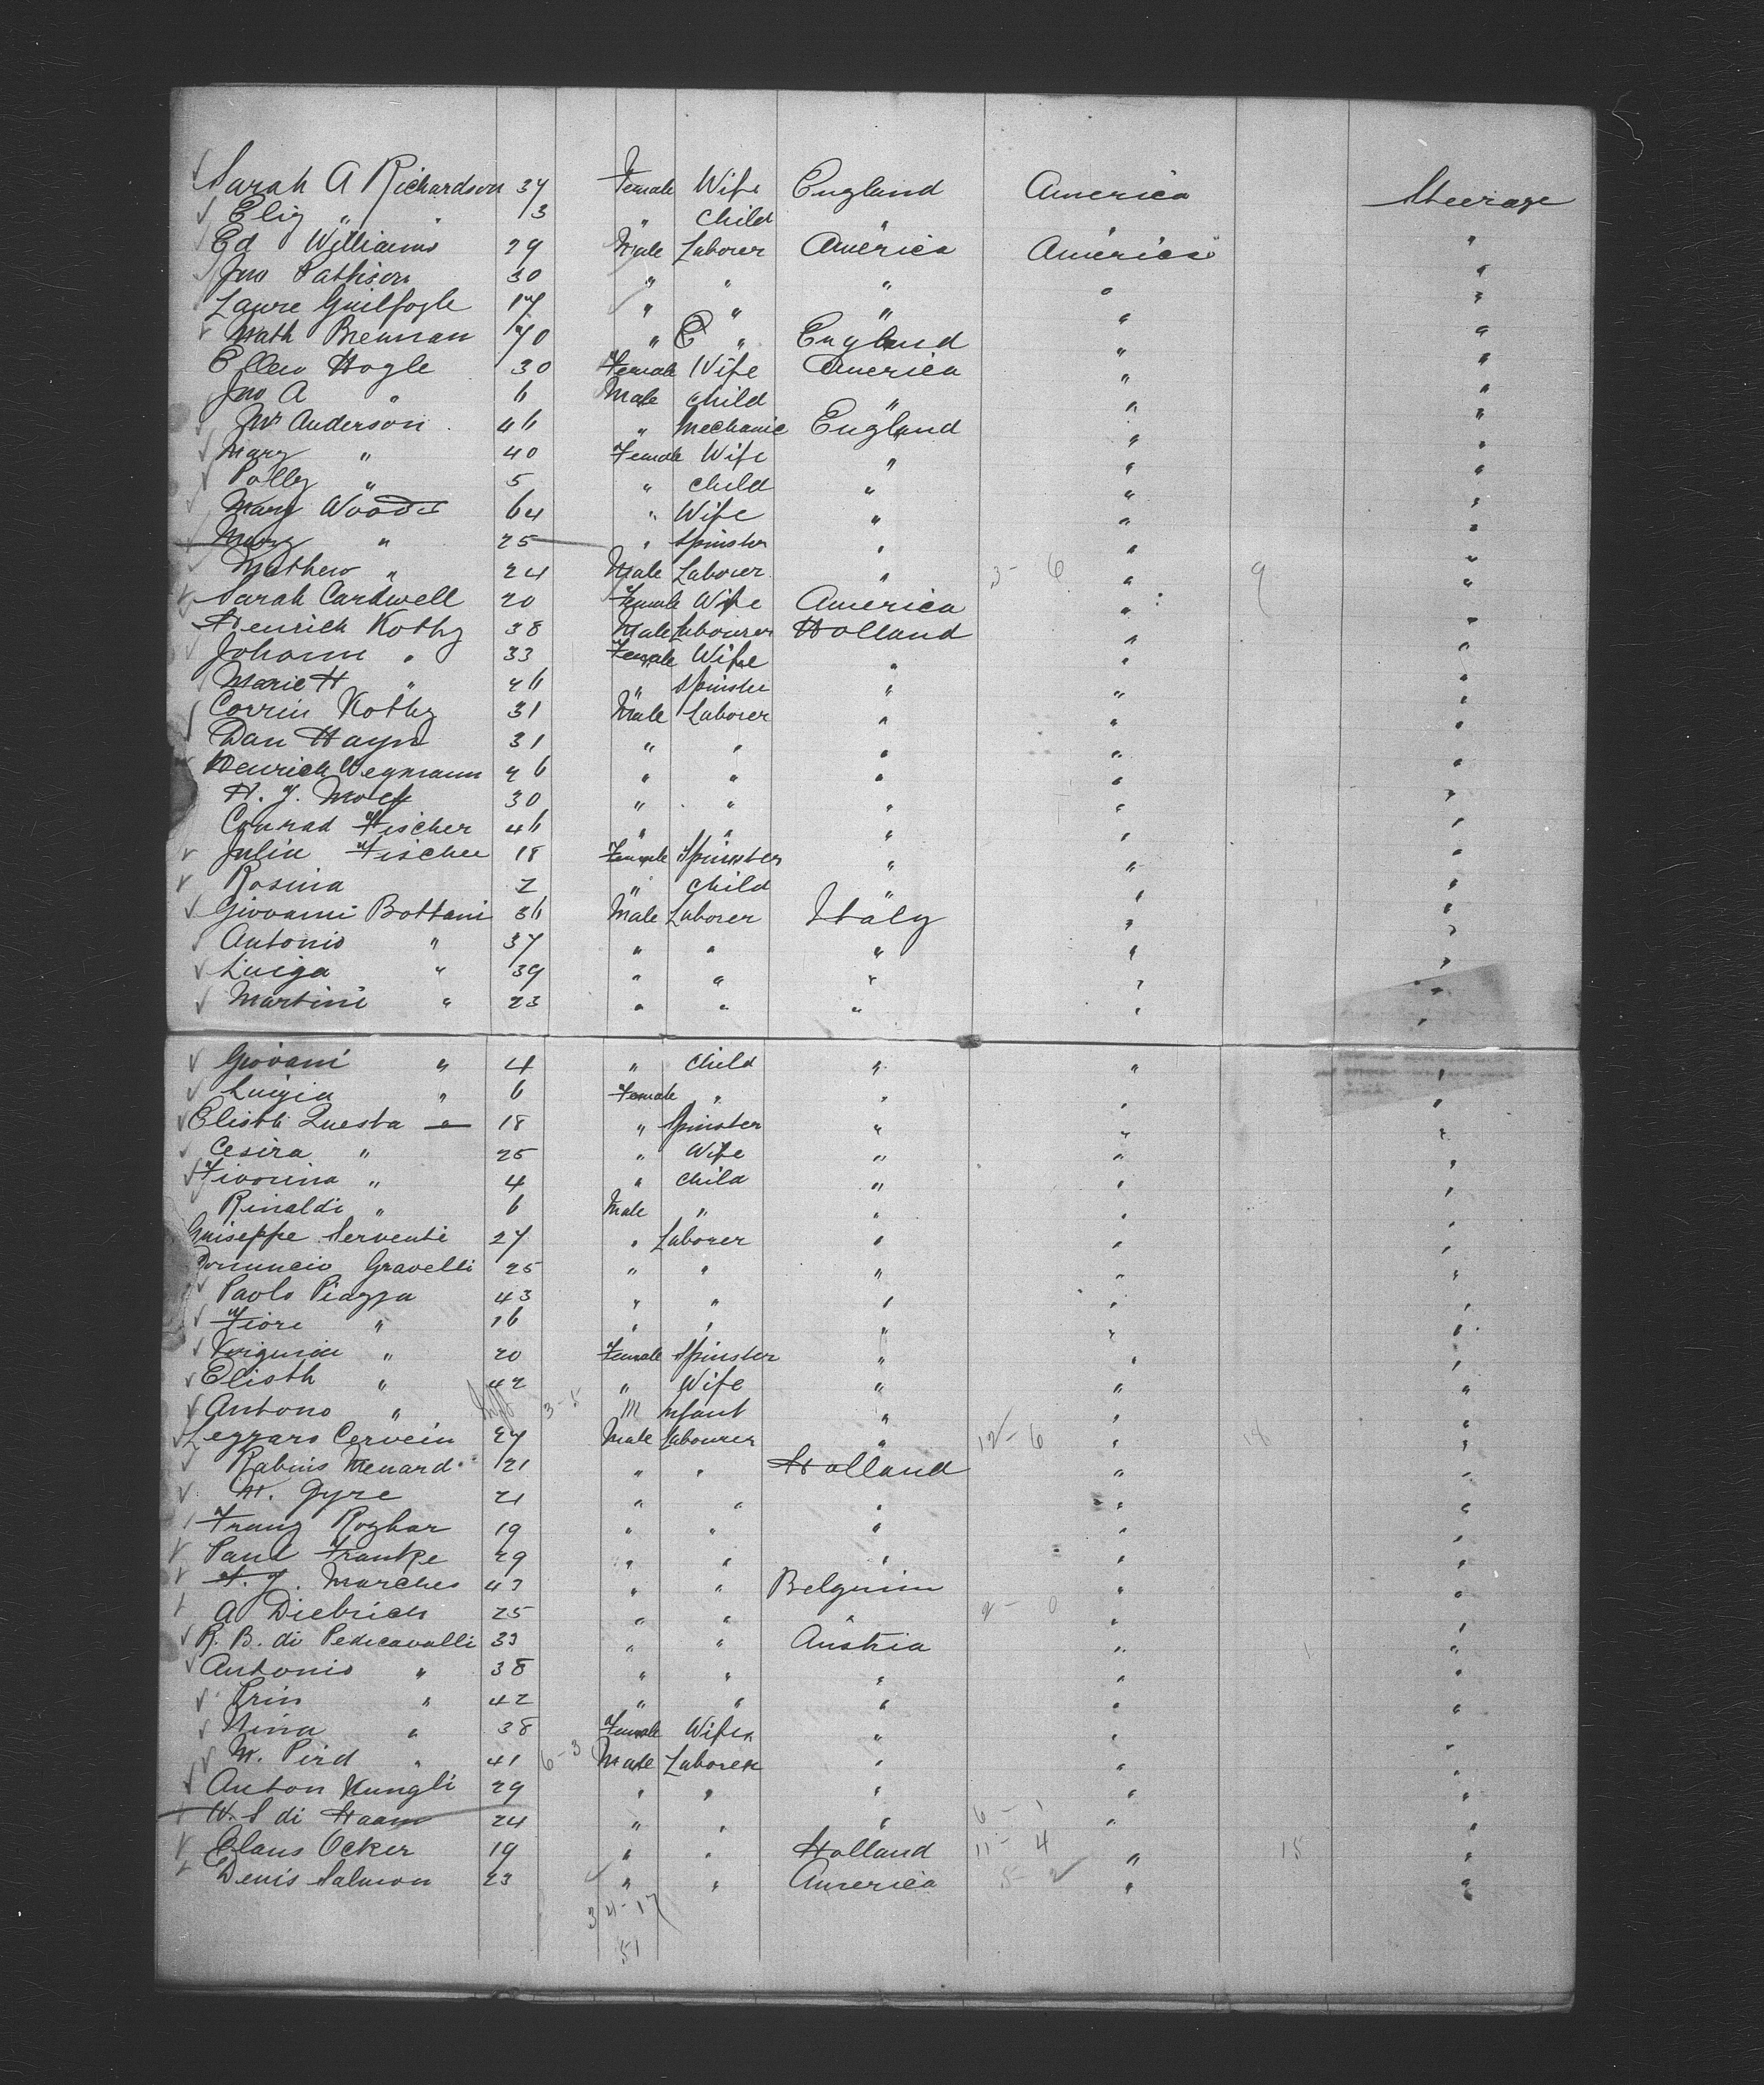 Sarah A Richardson 34 Female Wife England America Steerage
Eliz " " 13 " Child " " "
Ed Williams 29 Male Laborer America America "
Jno Pathison 30 " " " " "
Laure Guilfogle 17 " " " " "
Math Brennan 40 " " England " "
Ellen Hogle 30 Female Wife America " "
Jno A " 6 Male child " " "
Mr Anderson 46 " Mechanic England " "
Mary " 40 Female Wife " " "
Polly " 5 " child " " "
Mary Woods 64 " Wife " " "
Mary " 25 " Spinster " " "
Mathew " 24 Male Laborer " 3-6 " 9 "
Sarah Cardwell 20 Female Wife America " "
Henrich Kothy 38 Male Labourer Holland " "
Johann " 33 Female Wife " " "
Marie H " 46 " Spinster " " "
Corrin Kothy 31 Male Laborer " " "
Dan Hayn 31 " " " " "
Henrich Wegmann 46 " " " " "
H. J. Molf 30 " " " " "
Conrad Fischer 46 " " " " "
Julia Fischer 18 Female Spinster " " "
Rosina 2 " child " " "
Giovanni Bottani 36 Male Laborer Italy " "
Antonio " 37 " " " " "
Luiga " 39 " " " " "
Martini " 23 " " " " "
Giovani " 4 " child " " "
Luigia " 6 Female " " " "
Elisth Questa 18 " Spinster " " "
Cesira " 25 " Wife " " "
Fiorina " 4 " child " " "
Rinaldi " 6 Male " " " "
Guiseppe Serventi 27 " Laborer " " "
Gravelli 25 " " " " "
Paolo Piazza 43 " " " " "
Fiore " 16 " " " " "
Virginia " 20 Female Spinster " " "
Elisth " 42 " Wife " " "
Antono " Inft 3-5 M nfant " " "
Lezzaro Cervein 27 Male Labourer " 12-6 " 18 "
Rabins Menard 21 " " Holland " "
M. Gyre 21 " " " " "
Franz Rozhar 19 " " " " "
Paul Franke 29 " " " " "
J. Marches 43 " " Belguim " "
A Diebrich 25 " " 2-0 " "
R. B. di Pedicavalli 33 " " Austria " 1 "
Antonio " 38 " " " " "
Prin " 42 " " " " "
Nina " 38 Female Wife " " "
M. Pird " 41 6-3 Male Laborer " " "
Anton Kungli 29 " " " " "
H. S di Haam 24 " " " 6-1 " "
Claus Ocker 19 " " Holland 11-4 " 15 "
Denis Salmon 23 " " America 5-2 " "
34-17
51